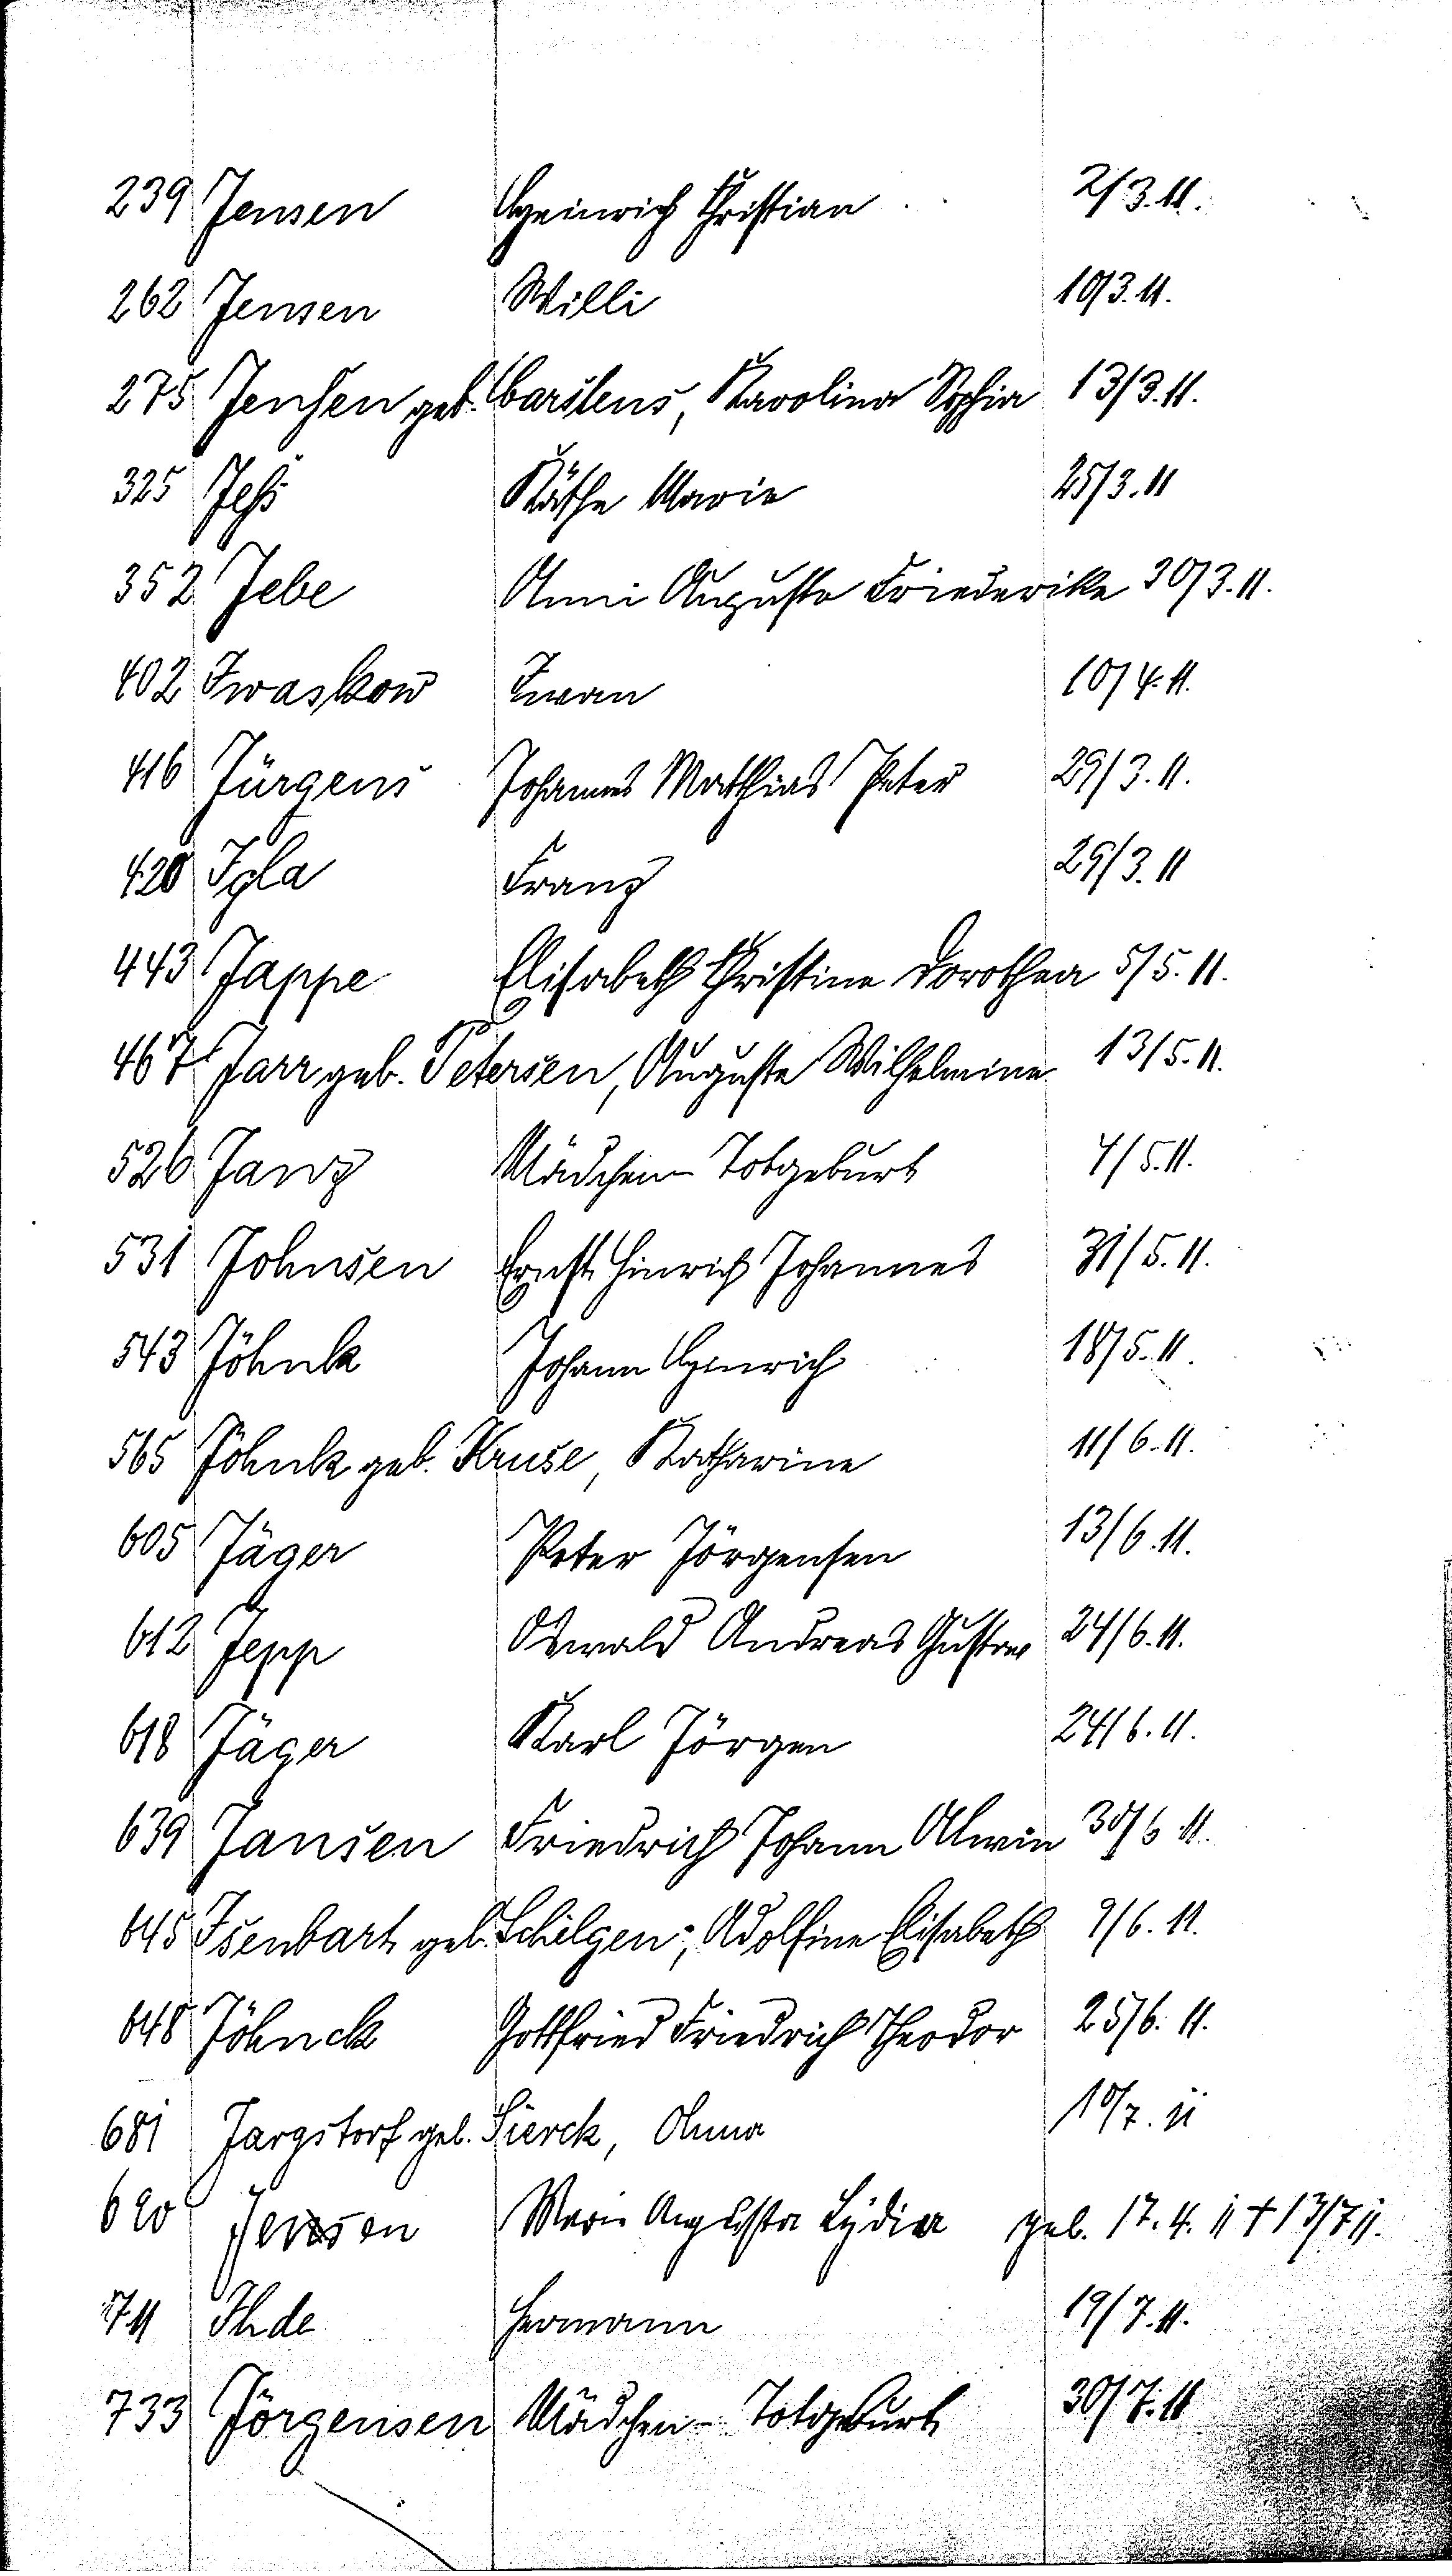 239 Jensen Heinrich Christian 2/3.11.
262 Jensen Willi 10/3.11.
275 Jenßen geb. Carstens, Karolina Sophia 13/3.11.
325 Jeß Käthe Marie 25/3.11
352 Jebe Anni Auguste Friederike 30/3.11.
402 Iwaskow Iwan 10/4.11.
416 Jürgens Johannes Matthias Peter 29/3.11.
420 Igla Franz 29/3.11
443 Jappe Elisabeth Christine Dorothea 5/5.11.
467 Jarr geb. Petersen, Auguste Wilhelmine 13/5.11.
526 Janz Mädchen-Totgeburt 4/5.11.
531 Johnsen Ernst Hinrich Johannes 31/5.11.
543 Jöhnk Johann Hinrich 18/5.11.
565 Jöhnk geb. Kruse, Katharine 11/6.11.
605 Jäger Peter Jörgensen 13/6.11.
612 Jepp Oswald Andreas Gustav 24/6.11.
618 Jäger Karl Jörgen 24/6.11.
639 Jansen Friedrich Johann Alwin 30/6 11.
645 Isenbart geb. Schilgen, Adolfine Elisabeth 9/6.11.
648 Jöhnck Gottfried Friedrich Theodor 25/6.11.
681 Jargstorf geb. Sierck, Anna 10/7.11
690 Jensen Marie Augusta Lydia geb. 17.4.11 † 13/7 11.
711 Ihde Hermann 19/7.11.
733 Jörgensen Mädchen-Totgeburt 30/7.11